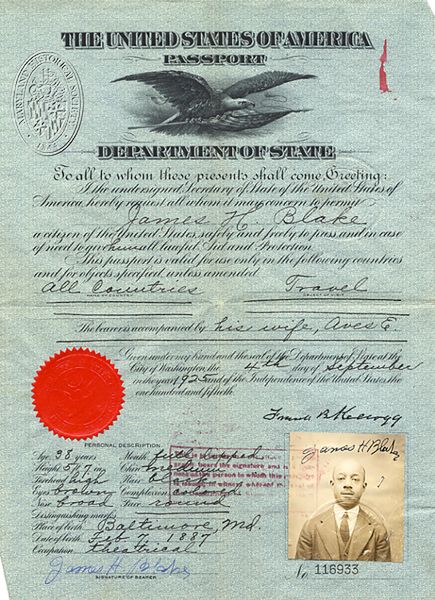 MARYLAND HISTORICAL SOCIETY
1844
THE UNITED STATES OF AMERICA
PASSPORT
DEPARTMENT OF STATE
To all to whom these presents shall come, Greeting:
I the undersigned, Secretary of State of the United States of
America, hereby request all whom it may concern to permit
James H. Blake
a citizen of the United States, safely and freely to pass and in case
of need to give him all lawful Aid and Protection.
This passport is valid for use only in the following countries
and for objects specified, unless amended
All Countries Travel
NAME OF COUNTRY OBJECT OF VISIT
The bearer is accompanied by his wife, Aves E.
Given under my hand and the seal of the Department of State at the
City of Washington, the 4th day of September
in the year 1925 and of the Independence of the United States the
one hundred and fiftieth.
Frank B. Kellogg
PERSONAL DESCRIPTION
Age 38 years Mouth
Height 5 ft 7 ins Chin medium
Forehead high Hair black
Eyes brown Complexion colored
Nose broad Face round
Distinguishing marks
Place of birth Baltimore, Md.
Date of birth Feb 7, 1887
Occupation theatrical
James H. Blake
SIGNATURE OF BEARER
James H Blake
No 116933